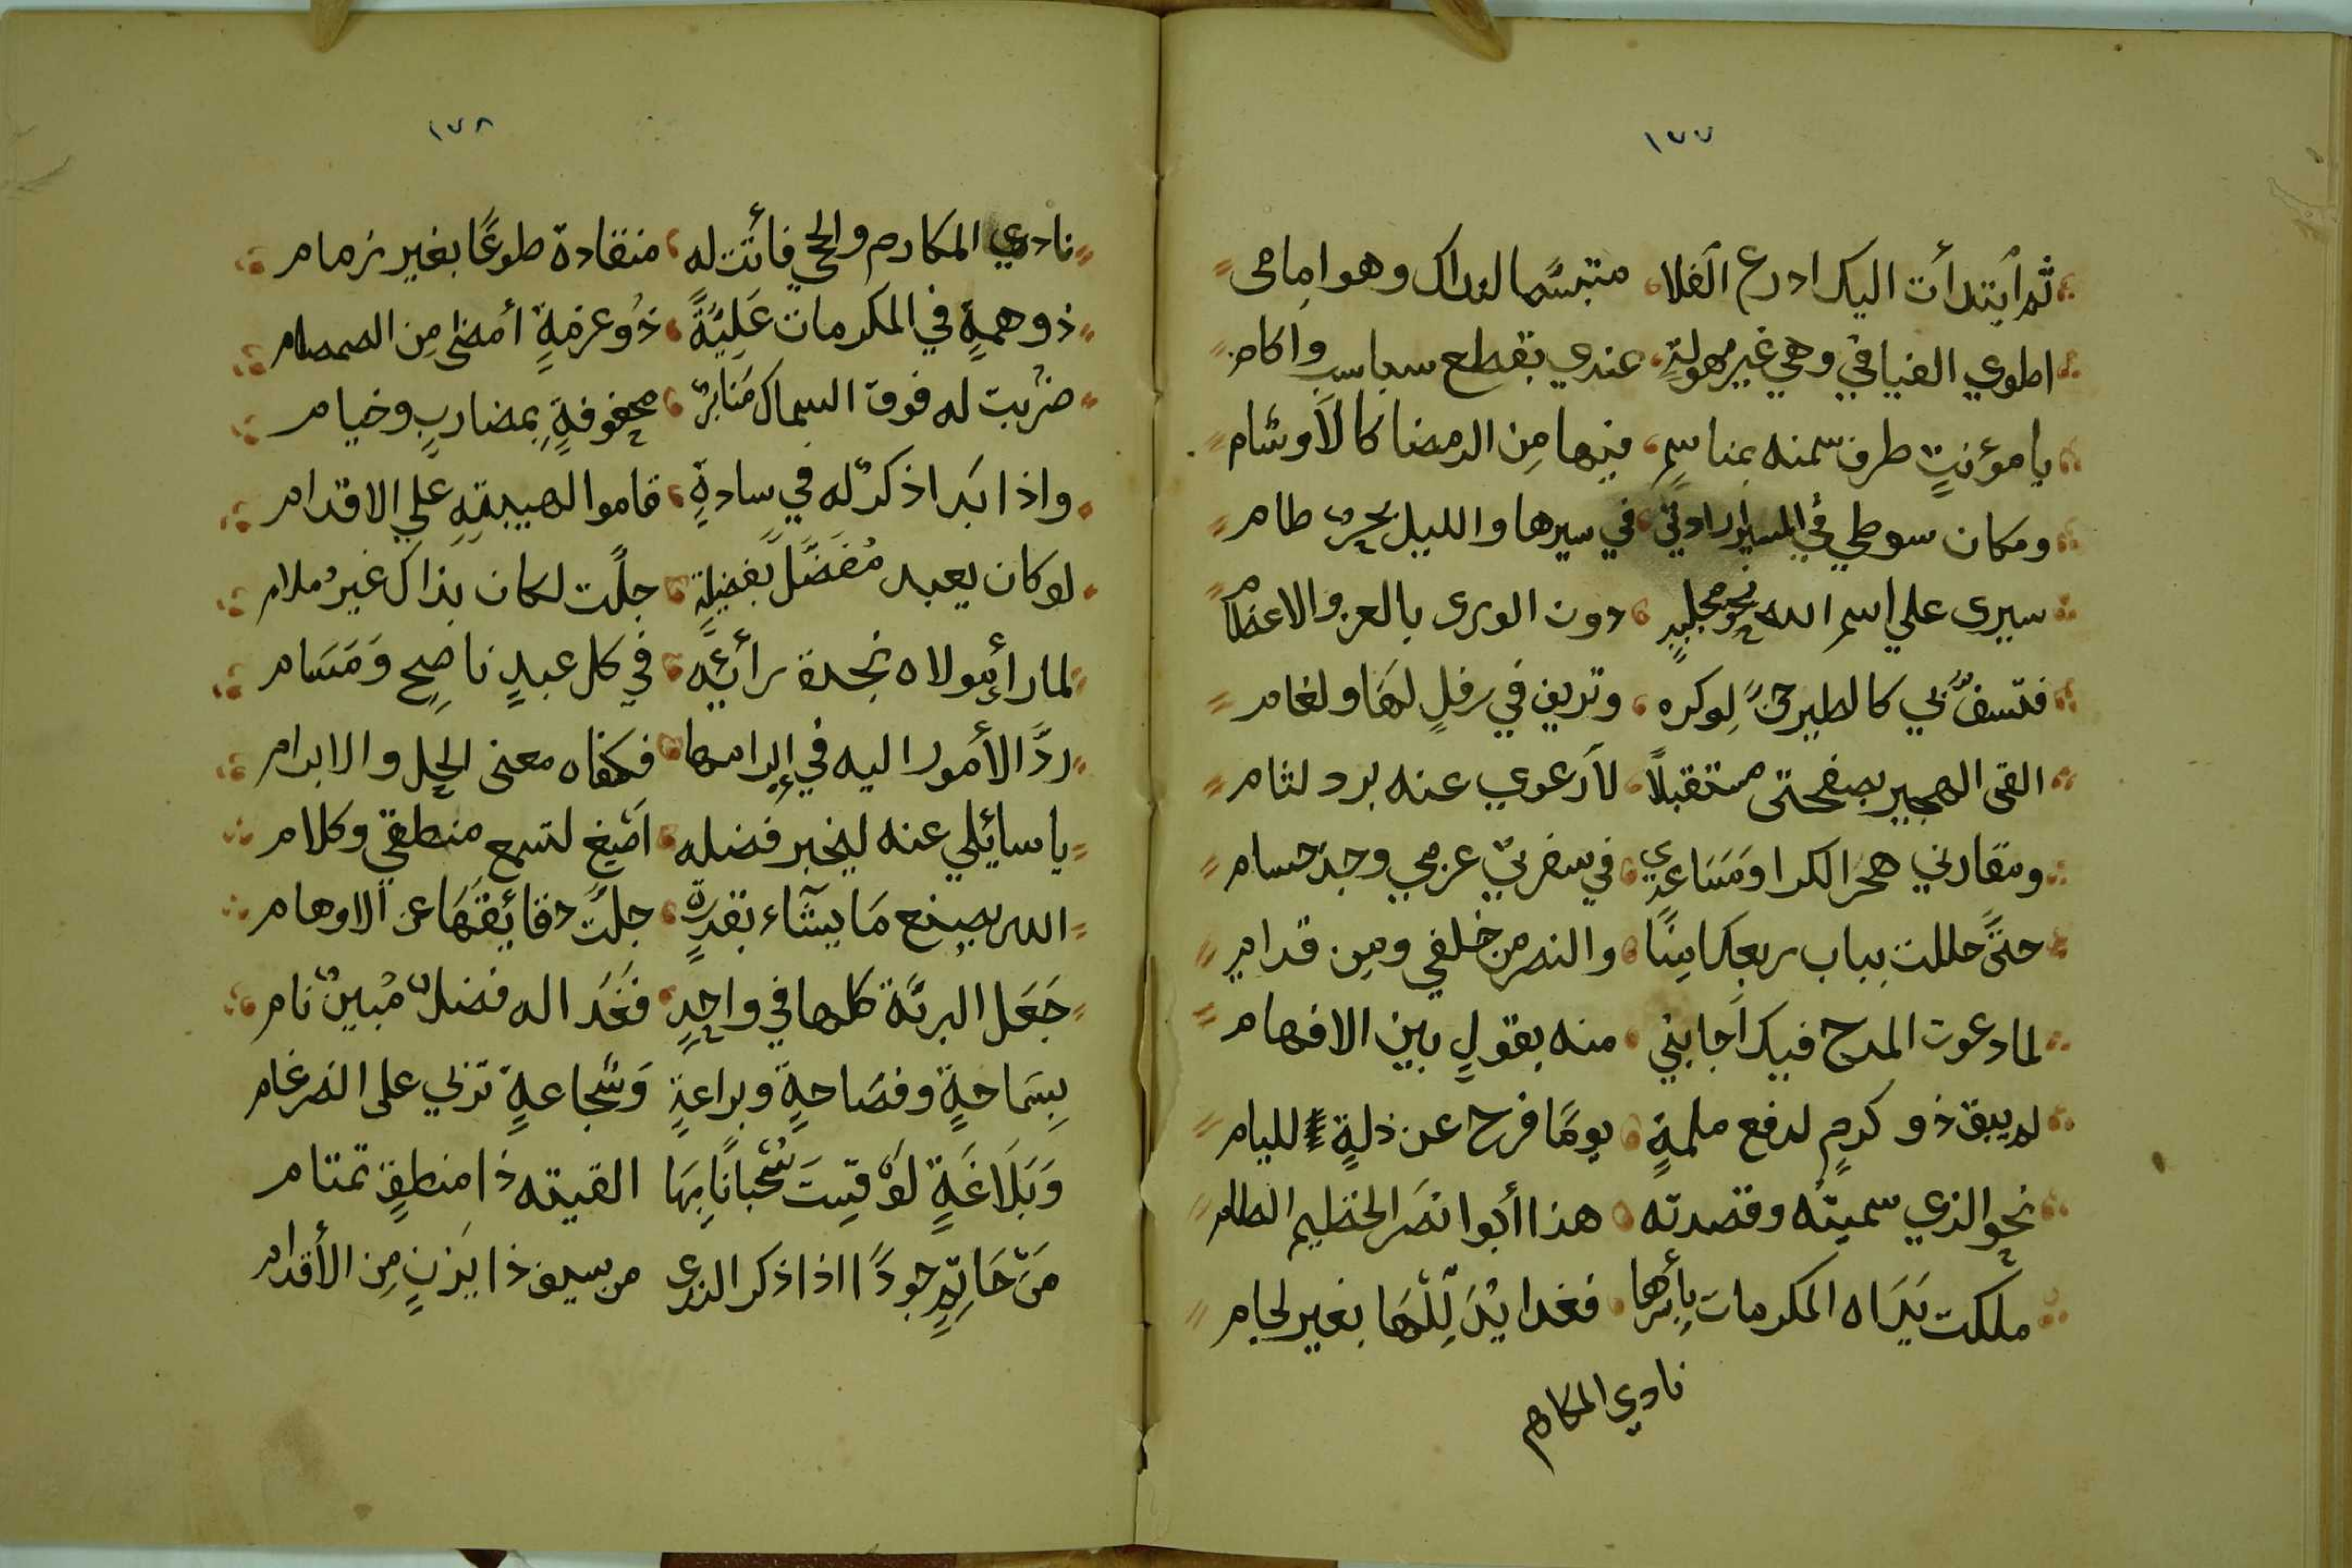 ١٧٧
ثم ابتدأت اليك ادرع الفلا متبسما لنداك وهو امامى
اطوي الفيافي وهي غير مهولةٍ عندي بقطع سباسب واكام
يا مؤنتٍ طرف سمنه بمناسمٍ فيها مِن الرمضا كالأوشام
ومكان سوطي في المسير ارادتي في سيرها والليل بحرٌ طام
سيرى علي اسم الله نحو مجلبدٍ دون الورى بالعز والاعظام
فتسفُّ بي كالطير حنَّ لِوكره وتريف في رفلٍ لهَا ولغام
القى الهجير بصفحتى مستقبلاً لا أرعوي عنه برد لثام
ومقارني هجر الكرا ومَسَاعدِي في سفرتي عزمي وجد حسام
حتَّى حللت بباب ربعك امِنًا والنصر من خلفي ومِن قدام
لما دعوت المدح فيك اَجابني منه بقولٍ بين الافهام
لم يبق ذو كرمٍ لدفع ملمةٍ يومًا فرح عن ذلةٍ لليام
نحو الذي سميتُه وقصدته هذا أبوا نصَر الخظيم الطام
ملكت يَدَاه المكرمات بِأسْرها فغدا يُذَلِّلُهَا بغير لجام
نادي المكارم
١٧٨
نادي المكارم والحجي فأتت له منقادة طوعًا بغير زمام
ذو همةٍ في المكرمات عَلِيَّةً ذُو عزمةٍ أمضى مِن الصمصام
ضُربت له فوق السماك مَنَابرٌ محفوفةٍ بمضاربٍ وخيام
واذا بَدا ذكرٌ له في سادةٍ قاموا لهيبتهِ علي الاقدام
لو كان يعبد مُفضَّل بفضيلةٍ جلَّت لكان بذاك غيرُ ملام
لما رأي مولاه نجدة رأيَّه في كل عبدٍ ناصِحٍ وَمَسَام
ردَّ الأمور اليه في إبرامها فكفاه معنى الحِل والابرام
يا سايئلي عنه ليخبر فضله اَصِغ لتسمع منطقي وكلام
الله يصنع مَا يشآء بقدرةٍ جلَّت دقائقهَا عن الاوهام
جَعَل البريَّة كلها في واحدٍ فَغَدا له فضلٌ مُبينٌ نام
بِسَماحةٍ وفصَاحةٍ وبراعةٍ وَشجاعةٍ تزبي على الضرغام
وَبَلَاغَةٍ لَوْ قِستَ سُحْبَانًا بِهَا القيته ذا منطقٍ تمتام
مَنْ حَاتِمٍ جودًا اذا ذكر الندى من سيف ذا يَزنٍ مِن الأقدام